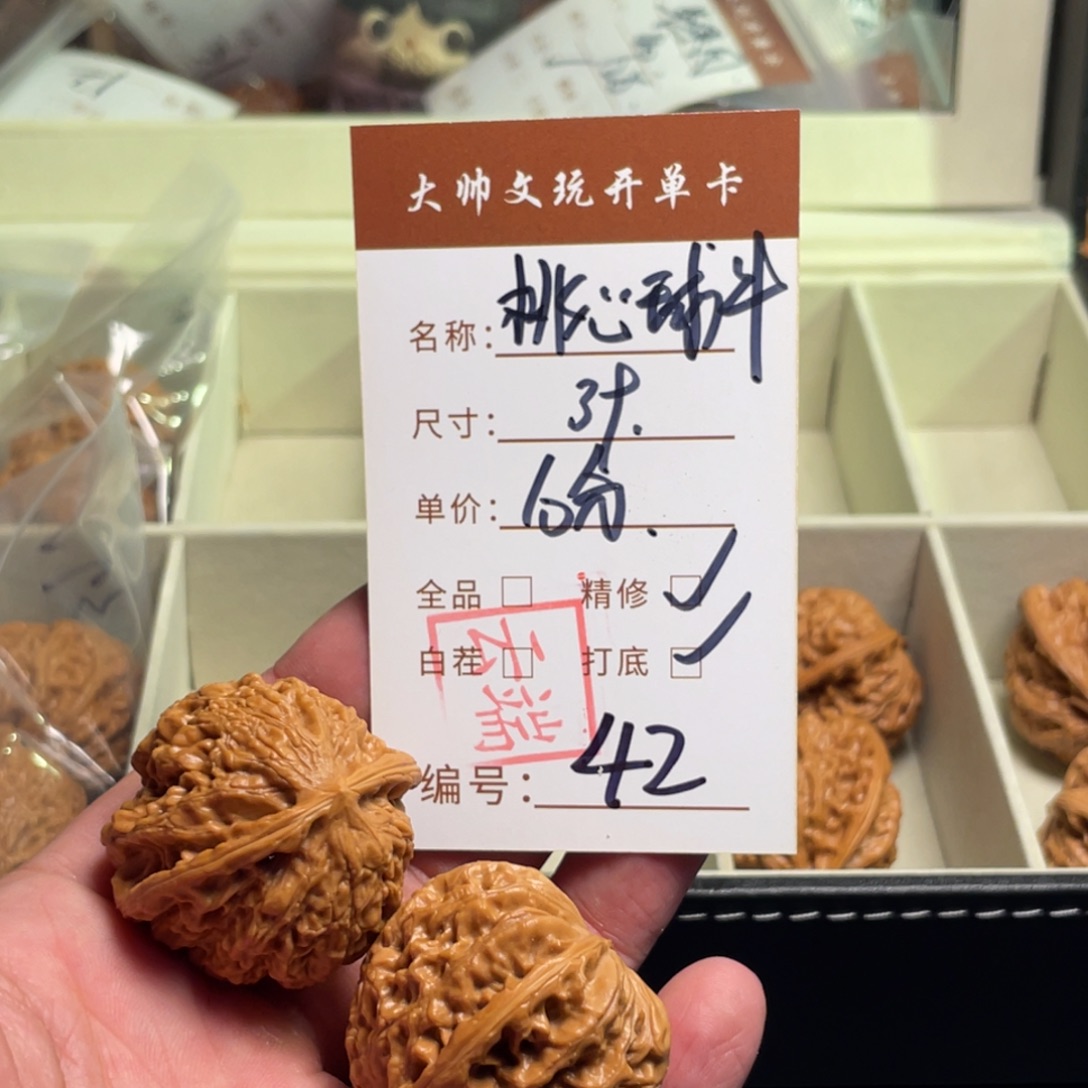 大帅文玩开单卡
名称：桃心
尺寸：3寸.
单价：份.
全品 □ 精修 ☑
白茬 □ 打底 ☑
云端
编号：42